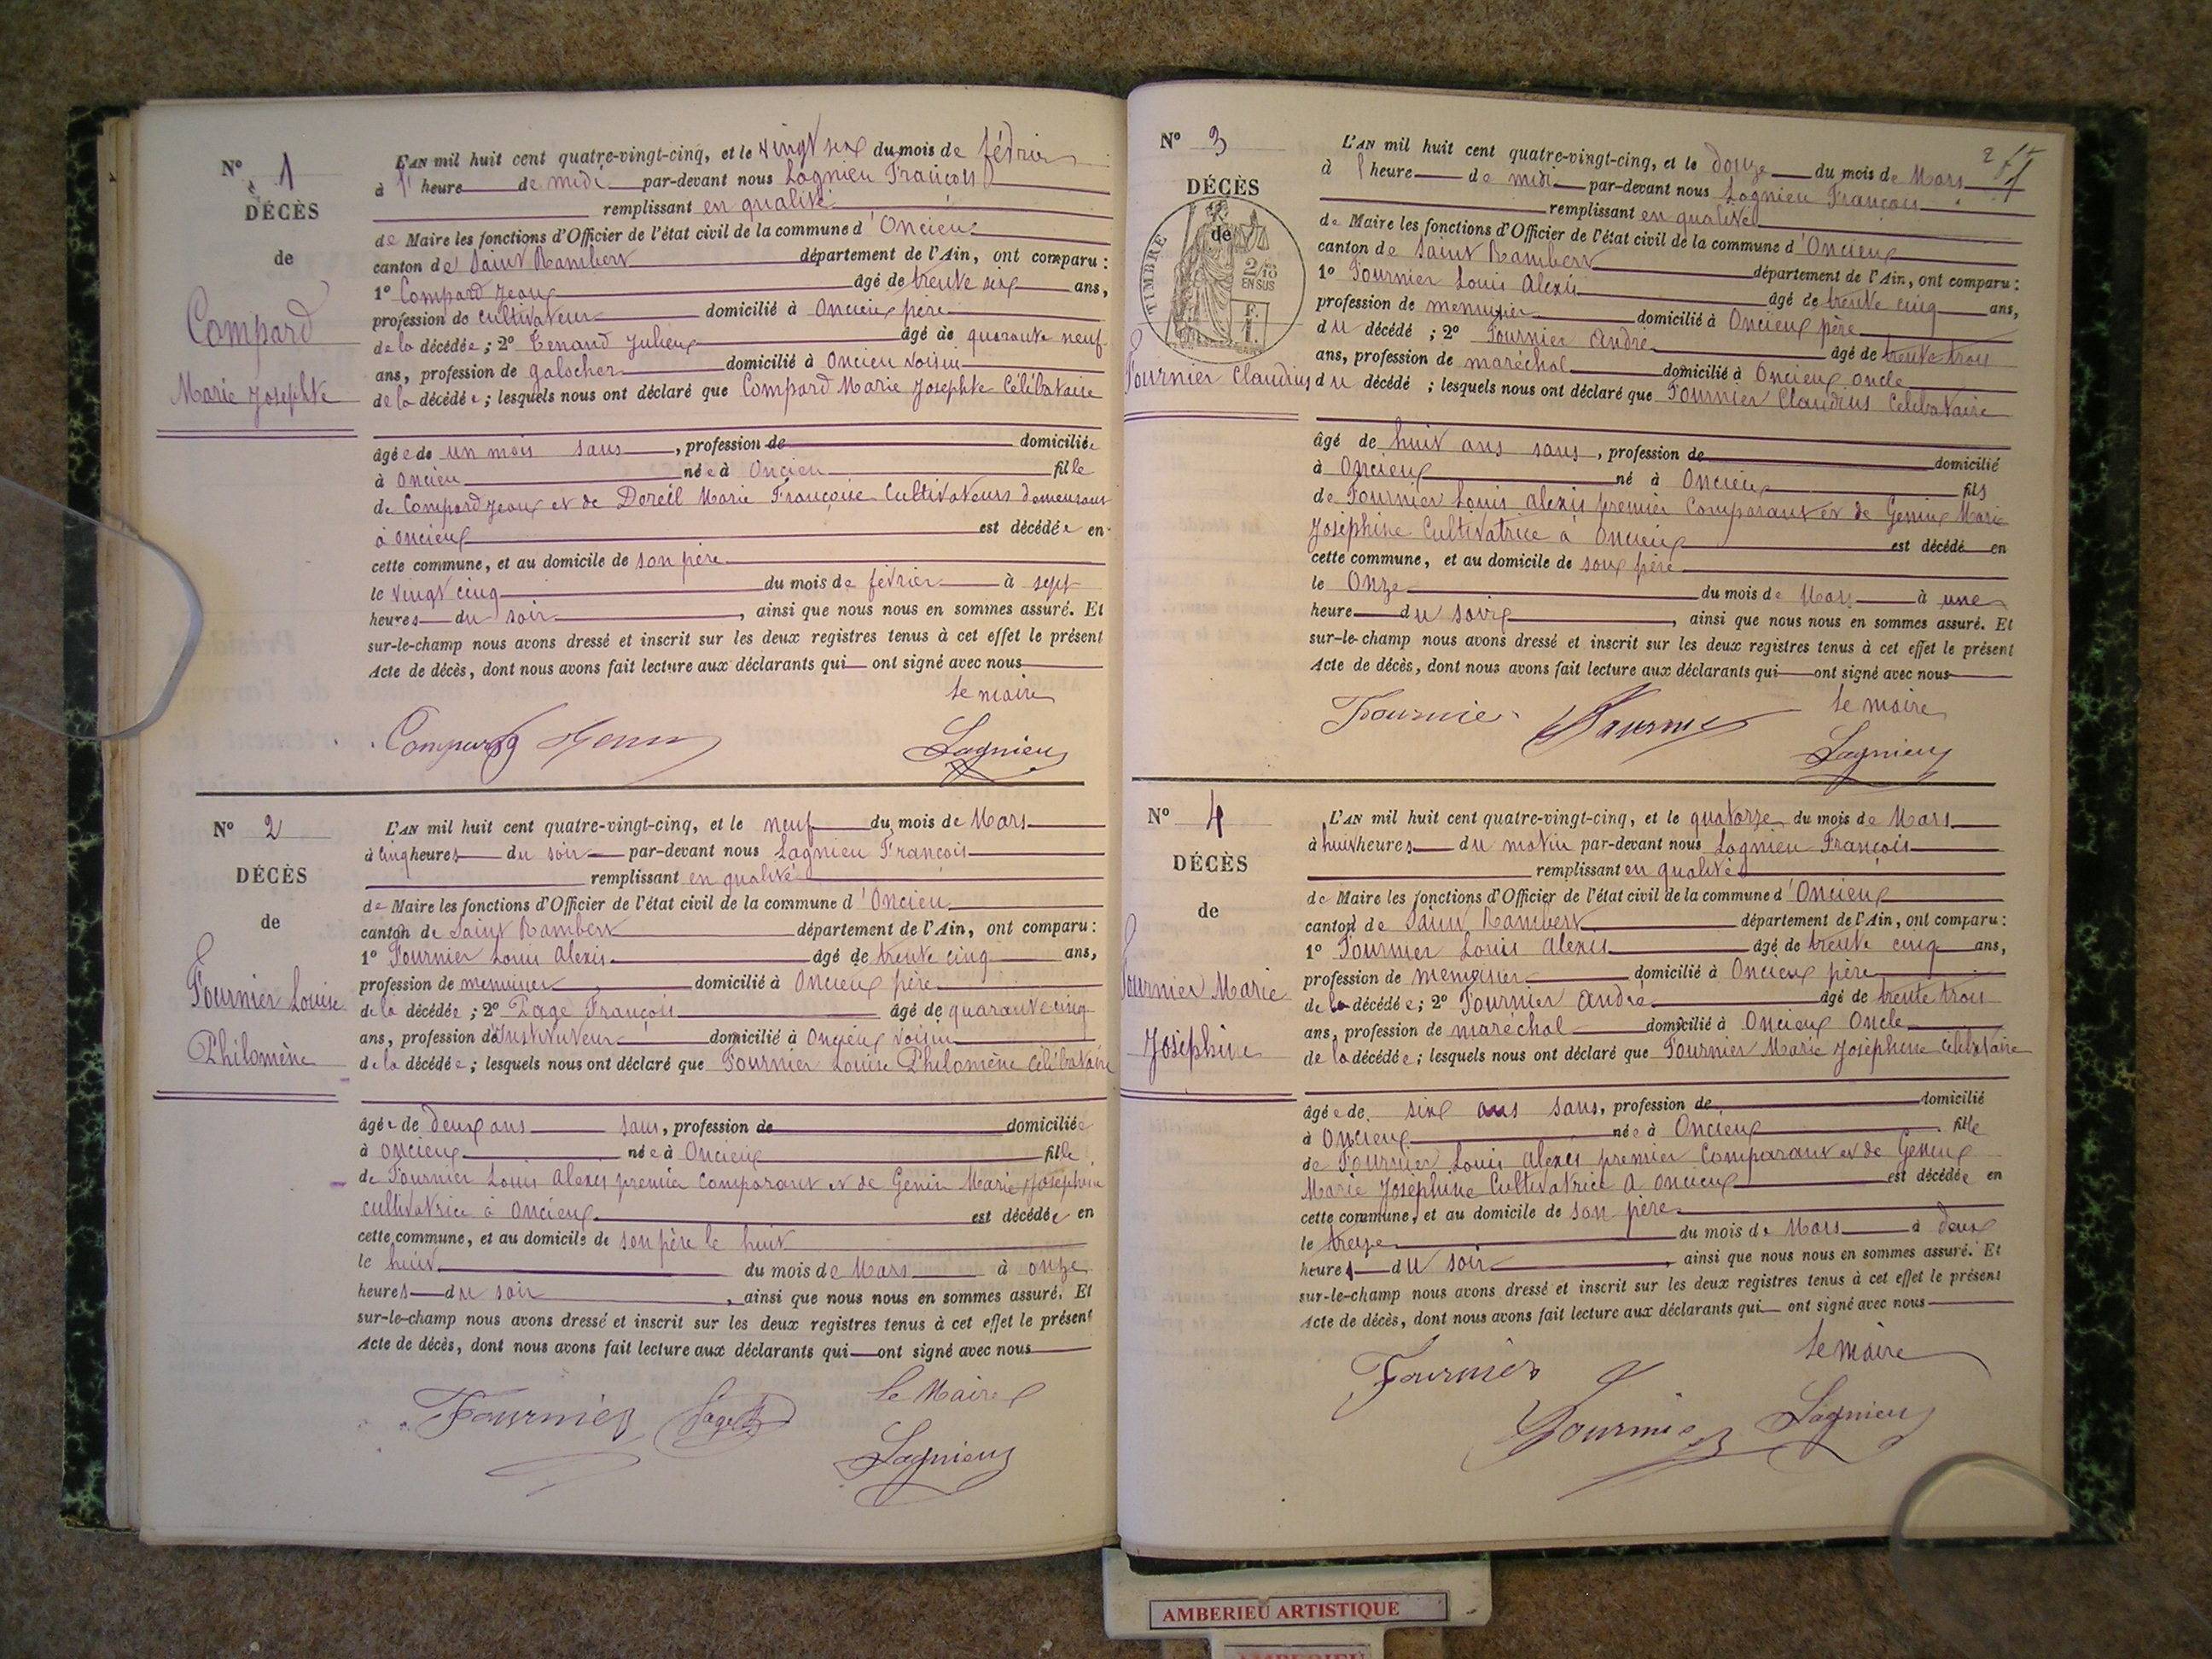 N° 1
DÉCÈS
de
Compard
Marie Josephte
L'AN mil huit cent quatre-vingt-cinq, et le vingt six du mois de février
à 1 heure de midi par-devant nous Lagnieu François
remplissant en qualité
de Maire les fonctions d'Officier de l'état civil de la commune d'Oncieux
canton de Saint Rambert département de l'Ain, ont comparu :
1° Compard Jean âgé de trente six ans,
profession de cultivateur domicilié à Oncieux père
de la décédée ; 2° Tenand Julien âgé de quarante neuf
ans, profession de galocher domicilié à Oncieu voisin
de la décédée ; lesquels nous ont déclaré que Compard Marie Josephte Célibataire
âgée de un mois sans, profession de domiciliée
à Oncieu née à Oncieu fille
de Compard Jean et de Doreil Marie Françoise Cultivateurs demeurant
à Oncieux est décédée en
cette commune, et au domicile de son père
le vingt cinq du mois de février à sept
heures du soir, ainsi que nous nous en sommes assuré. Et
sur-le-champ nous avons dressé et inscrit sur les deux registres tenus à cet effet le présent
Acte de décès, dont nous avons fait lecture aux déclarants qui ont signé avec nous
le maire
Lagnieu
N° 2
DÉCÈS
de
Fournier Louise
Philomène
L'AN mil huit cent quatre-vingt-cinq, et le neuf du mois de Mars
à cinq heures du soir par-devant nous Lagnieu François
remplissant en qualité
de Maire les fonctions d'Officier de l'état civil de la commune d'Oncieu
canton de Saint Rambert département de l'Ain, ont comparu :
1° Fournier Louis Alexis âgé de trente cinq ans,
profession de menuisier domicilié à Oncieux père
de la décédée ; 2° Page François âgé de quarante cinq
ans, profession d'Instituteur domicilié à Oncieux voisin
de la décédée ; lesquels nous ont déclaré que Fournier Louise Philomène Célibataire
âgée de deux ans sans, profession de domiciliée
à Oncieux née à Oncieux fille
de Fournier Louis Alexis premier comparant et de Genin Marie Josephine
cultivatrice à Oncieux est décédée en
cette commune, et au domicile de son père le huit
le huit du mois de Mars à onze
heures du soir, ainsi que nous nous en sommes assuré. Et
sur-le-champ nous avons dressé et inscrit sur les deux registres tenus à cet effet le présent
Acte de décès, dont nous avons fait lecture aux déclarants qui ont signé avec nous
Le Maire
Fournier Page
Lagnieu
N° 3
DÉCÈS
de
TIMBRE
2/10
EN SUS
Fournier Claudius
L'AN mil huit cent quatre-vingt-cinq, et le douze du mois de Mars
à 1 heure de midi par-devant nous Lagnieu François
remplissant en qualité
de Maire les fonctions d'Officier de l'état civil de la commune d'Oncieux
canton de Saint Rambert département de l'Ain, ont comparu :
1° Fournier Louis Alexis âgé de trente cinq ans,
profession de menuisier domicilié à Oncieux père
du décédé ; 2° Fournier André âgé de trente trois
ans, profession de maréchal domicilié à Oncieux oncle
du décédé ; lesquels nous ont déclaré que Fournier Claudius Célibataire
âgé de huit ans sans, profession de domicilié
à Oncieux né à Oncieux fils
de Fournier Louis Alexis premier Comparant et de Genin Marie
Joséphine Cultivatrice à Oncieux est décédé en
cette commune, et au domicile de son père
le Onze du mois de Mars à une
heure du soir, ainsi que nous nous en sommes assuré. Et
sur-le-champ nous avons dressé et inscrit sur les deux registres tenus à cet effet le présent
Acte de décès, dont nous avons fait lecture aux déclarants qui ont signé avec nous
le maire
Fournier Fournier
Lagnieu
N° 4
DÉCÈS
de
Fournier Marie
Joséphine
L'AN mil huit cent quatre-vingt-cinq, et le quatorze du mois de Mars
à huit heures du matin par-devant nous Lagnieu François
remplissant en qualité
de Maire les fonctions d'Officier de l'état civil de la commune d'Oncieux
canton de Saint Rambert département de l'Ain, ont comparu :
1° Fournier Louis Alexis âgé de trente cinq ans,
profession de menuisier domicilié à Oncieux père
de la décédée ; 2° Fournier André âgé de trente trois
ans, profession de maréchal domicilié à Oncieux Oncle
de la décédée ; lesquels nous ont déclaré que Fournier Marie Joséphine Célibataire
âgée de six ans sans, profession de domicilié
à Oncieux née à Oncieux fille
de Fournier Louis Alexis premier Comparant et de Genin
Marie Josephine Cultivatrice à Oncieux est décédée en
cette commune, et au domicile de son père
le treize du mois de Mars à deux
heures du soir, ainsi que nous nous en sommes assuré. Et
sur-le-champ nous avons dressé et inscrit sur les deux registres tenus à cet effet le présent
Acte de décès, dont nous avons fait lecture aux déclarants qui ont signé avec nous
le maire
Fournier
Fournier Lagnieu
AMBERIEU ARTISTIQUE
AMBERIEU